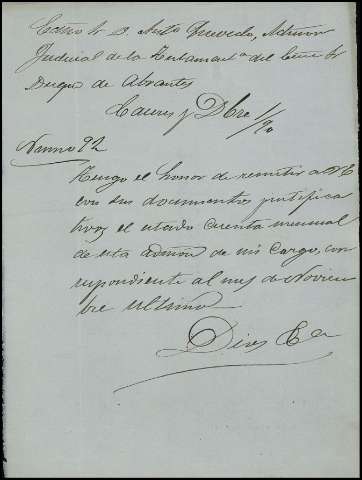 Excmo Sr D. Anto Quevedo, Admor
Judicial de la Testamenta del Excmo Sr
Duque de Abrantes
Caceres y Dbre 1/90
Numo 92
Tengo el honor de remitir a VE
con sus documentos justifica
tivos el estado cuenta mensual
de esta admon de mi cargo, cor
respondiente al mes de Noviem
bre ultimo
Dios &a